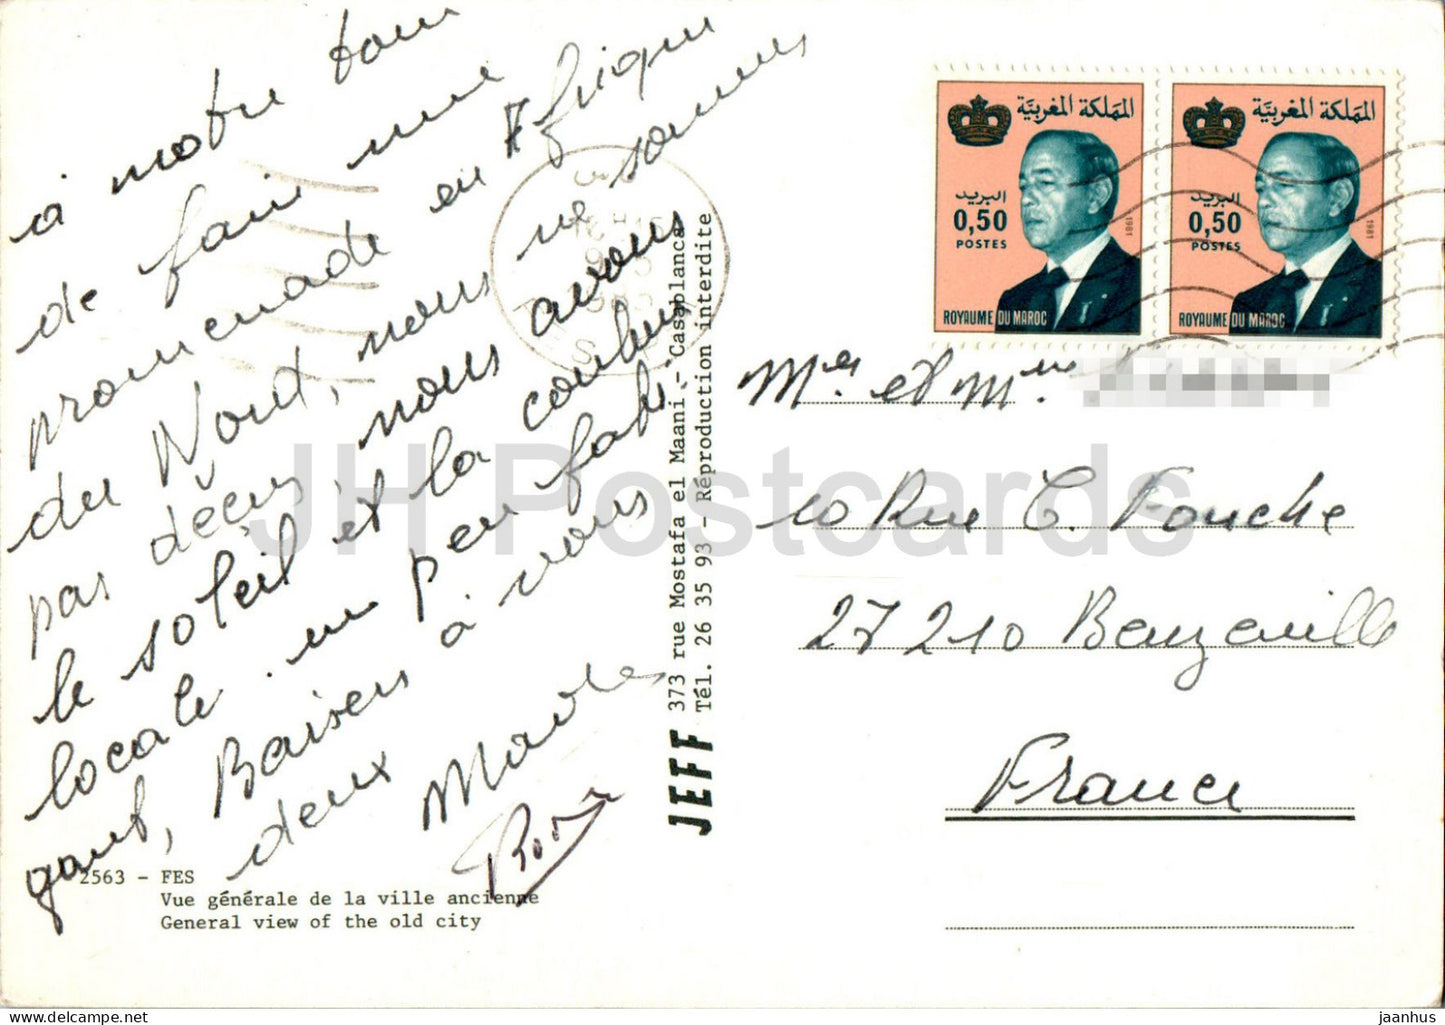 à notre tour
de faire une
promenade en Afrique
du Nord, nous ne sommes
pas déçus, nous avons
le soleil et la couleur
locale un peu fati-
gant, Baisers à vous
deux
2563 - FES
Vue générale de la ville ancienne
General view of the old city
JEFF 373 rue Mostafa el Maani - Casablanca
Tél. 26 35 93 - Réproduction interdite
المملكة المغربية
البريد
0,50
POSTES
1981
ROYAUME DU MAROC
المملكة المغربية
البريد
0,50
POSTES
1981
ROYAUME DU MAROC
Mr et Mme
10 Rue C. Fouche
27210 Beuzeville
France
JH Postcards
jaanhus @ Delcampe.net